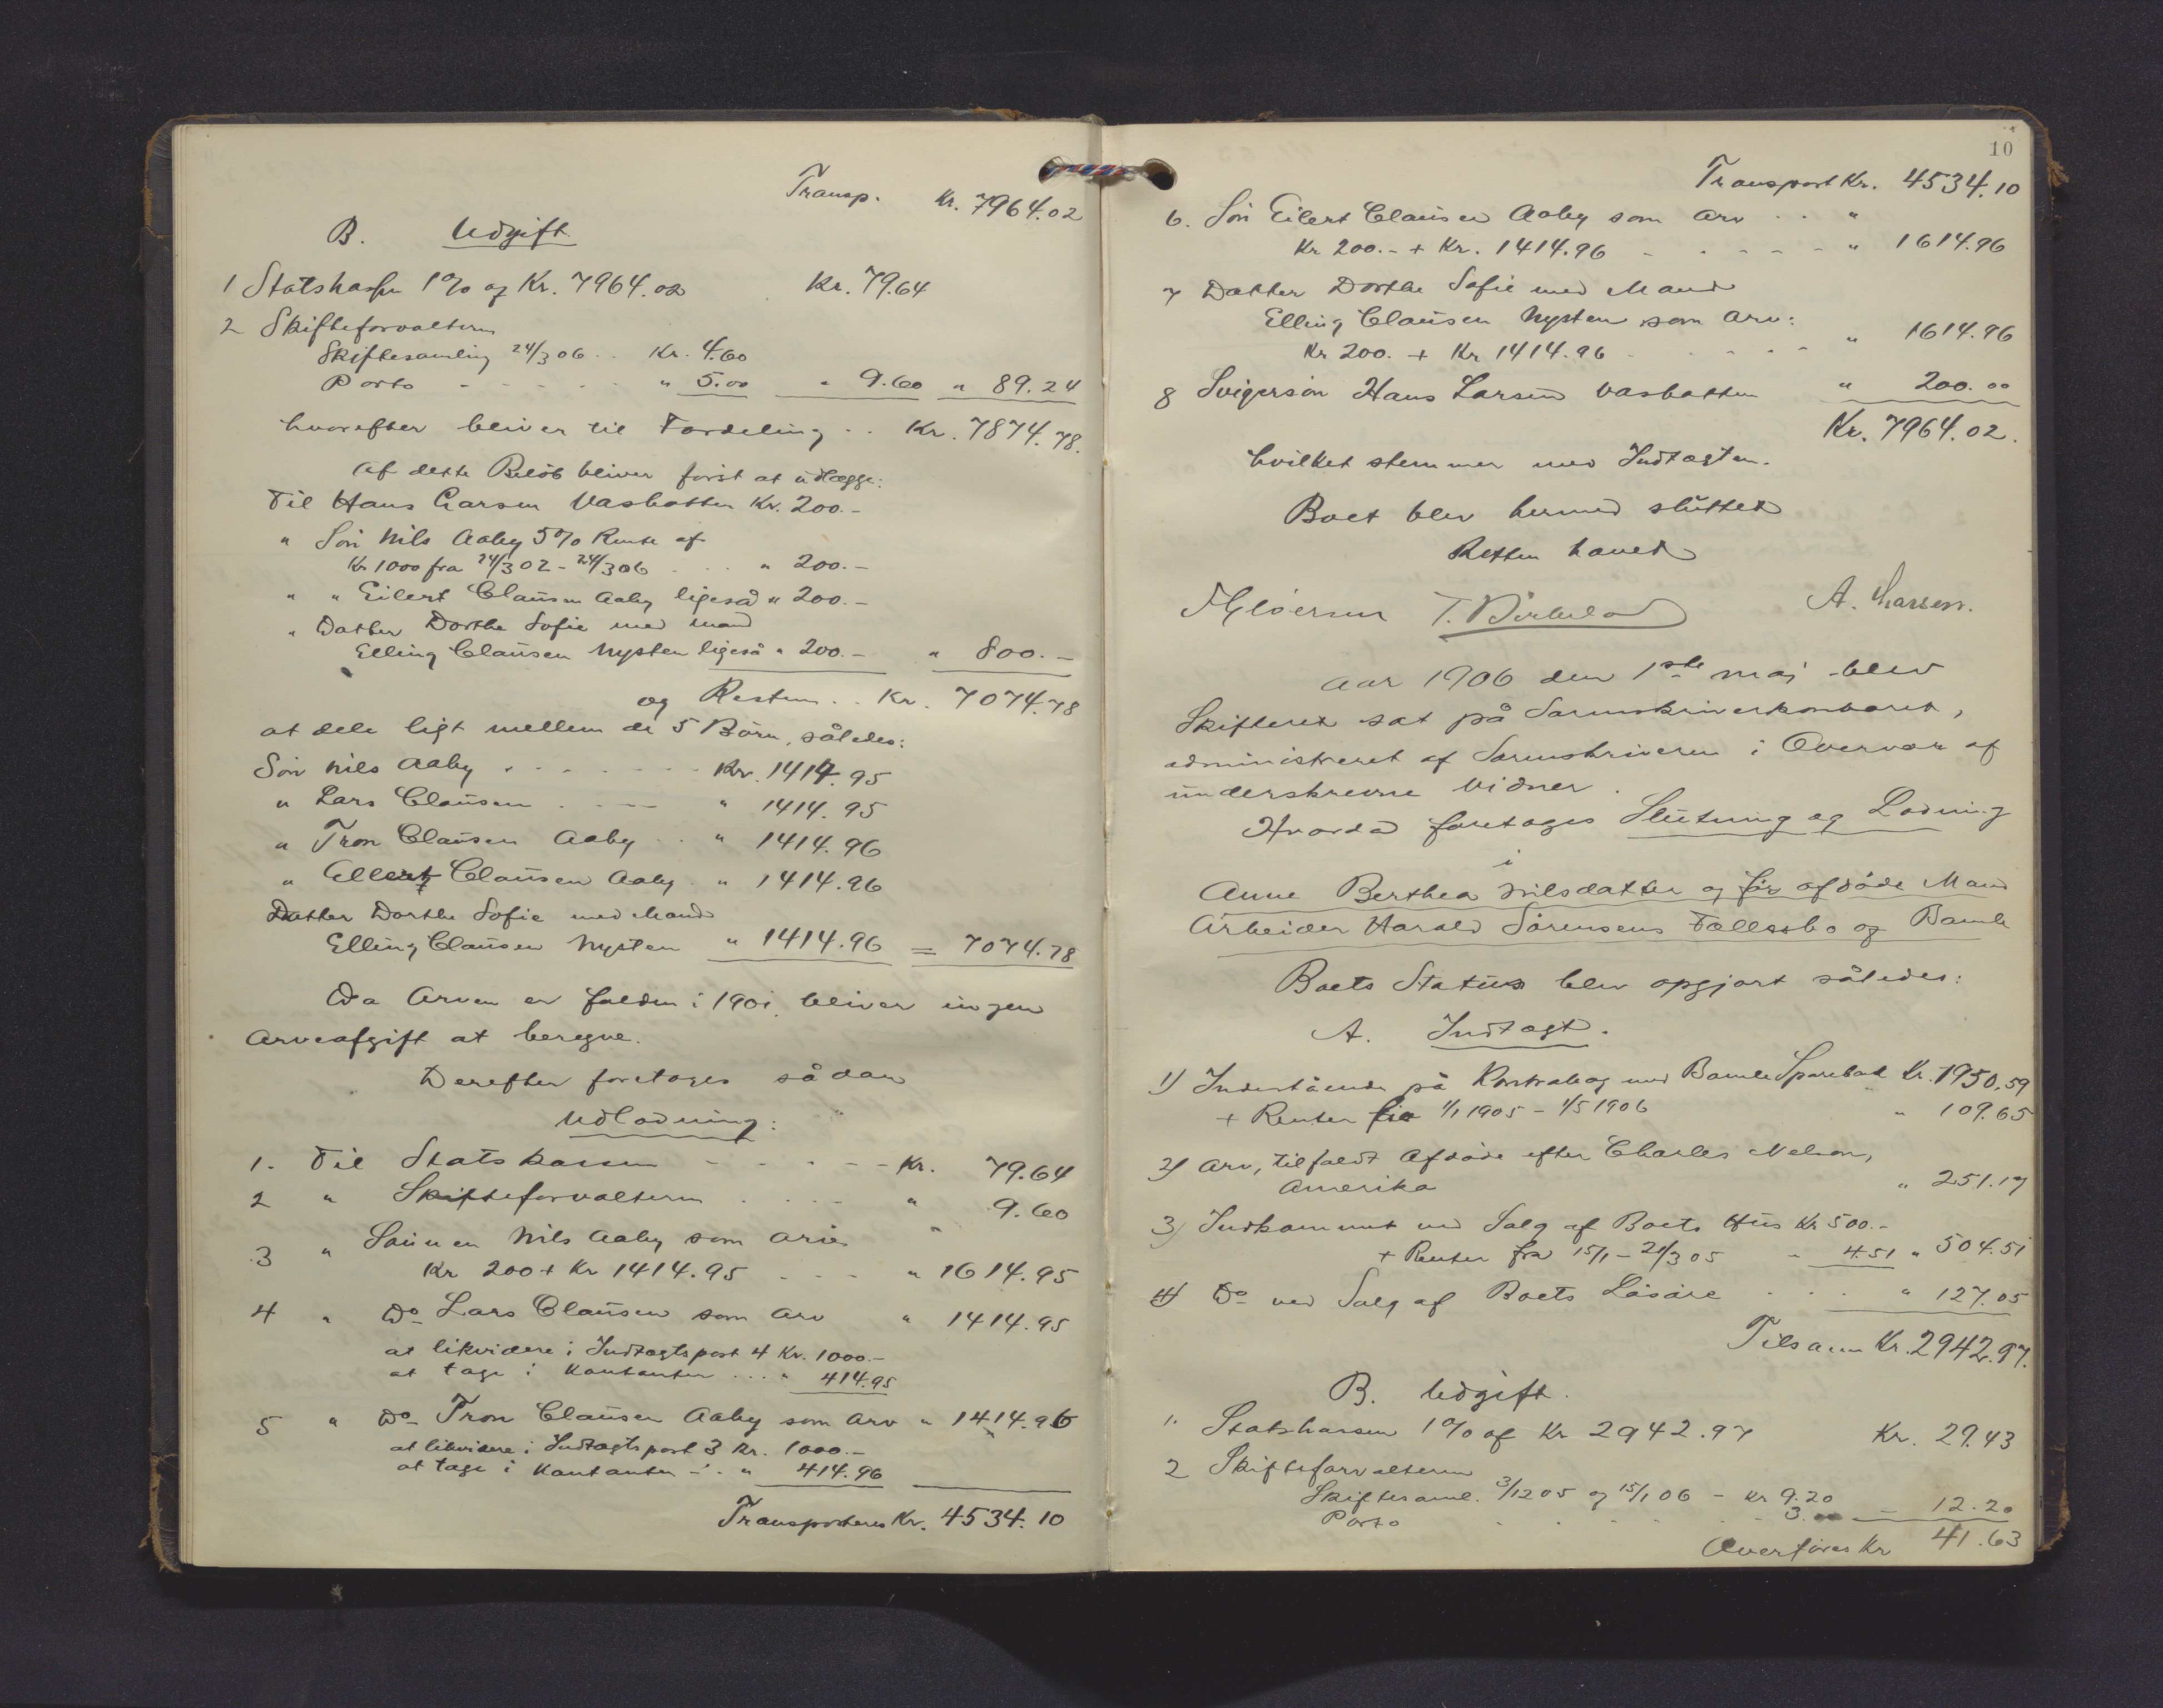 Transp. Kr. 7964.02
B. Udgift
1 Statskassen 1% af Kr. 7964.02 Kr. 79.64
2 Skifteforvalteren
Skiftesamling 24/3 06 .. Kr. 4.60
Porto - - - - - " 5.00 " 9.60 " 89.24
hvorefter bliver til Fordeling .. Kr. 7874.78.
Af dette Beløb bliver først at udlægge:
Til Hans Larsen Vasbotten Kr. 200.-
" Søn Nils Aaby 5% Rente af
Kr 1000 fra 24/3 02 - 24/3 06 . . . " 200.-
" " Eilert Clausen Aaby ligeså " 200.-
" Datter Dorthe Sofie med Mand
Elling Clausen Nysten ligeså " 200.- " 800.-
og Resten .. Kr. 7074.78
at dele ligt mellem de 5 Børn, således:
Søn Nils Aaby . - - - - - Kr. 1414.95
" Lars Clausen . - - - " 1414.95
" Tron Clausen Aaby . . " 1414.96
" Eilert Clausen Aaby . " 1414.96
Datter Dorthe Sofie med Mand
Elling Clausen Nysten " 1414.96 = 7074.78
Da Arven er falden i 1901, bliver ingen
Arveafgift at beregne.
Derefter foretoges sådan
Udlodning:
1. Til Statskassen - - - - - Kr. 79.64
2 " Skifteforvalteren . . . . " 9.60
3 " Sønnen Nils Aaby som Arv "
Kr 200 + Kr 1414.95 - - - " 1614.95
4 " Do Lars Clausen som Arv " 1414.95
at likvidere i Indtægtspost 4 Kr. 1000.-
at tage i Kontanter ... " 414.95
5 " Do Tron Clausen Aaby som Arv " 1414.96
at likvidere i Indtægtspost 3 Kr. 1000.-
at tage i Kontanter - . " 414.96
Transporteres Kr. 4534.10
10
Transport Kr. 4534.10
6. Søn Eilert Clausen Aaby som Arv . . "
Kr 200.- + Kr. 1414.96 - - - - - " 1614.96
7 Datter Dorthe Sofie med Mand
Elling Clausen Nysten som Arv:
Kr 200. + Kr 1414.96 - - - - - " 1614.96
8 Svigersøn Hans Larsen Vasbotten " 200.00
Kr. 7964.02.
hvilket stemmer med Indtægten.
Boet blev hermed sluttet
Retten hævet
T. Birkeland A. Larsen.
Aar 1906 den 1ste Maj blev
Skifteret sat på Sorenskriverkontoret,
administreret af Sorenskriveren i Overvær af
underskrevne Vidner.
Hvorda foretoges Slutning og Lodning
i
Anne Berthea Nilsdatter og før afdøde Mand
Arbeider Harald Sørensens Fællesbo af Bamle
Boets Status blev opgjort således:
A. Indtægt.
1) Indestående på Kontrabog med Bamle Spareb Kr. 1950.59
+ Renter fra 1/1 1905 - 1/5 1906 " 109.65
2) Arv, tilfaldt Afdøde efter Charles Nelson,
Amerika " 251.17
3) Indkommet ved Salg af Boets Hus Kr 500.-
+ Renter fra 15/1 - 21/3 05 " 4.51 " 504.51
4) Do ved Salg af Boets Løsøre . . . " 127.05
Tilsam Kr. 2942.97.
B. Udgift.
1. Statskassen 1% af Kr 2942.97 Kr. 29.43
2 Skifteforvalteren
Skiftesaml. 3/12 05 og 15/1 06 - Kr 9.20
Porto - - - - - 3.00 - 12.20
Overføres Kr 41.63